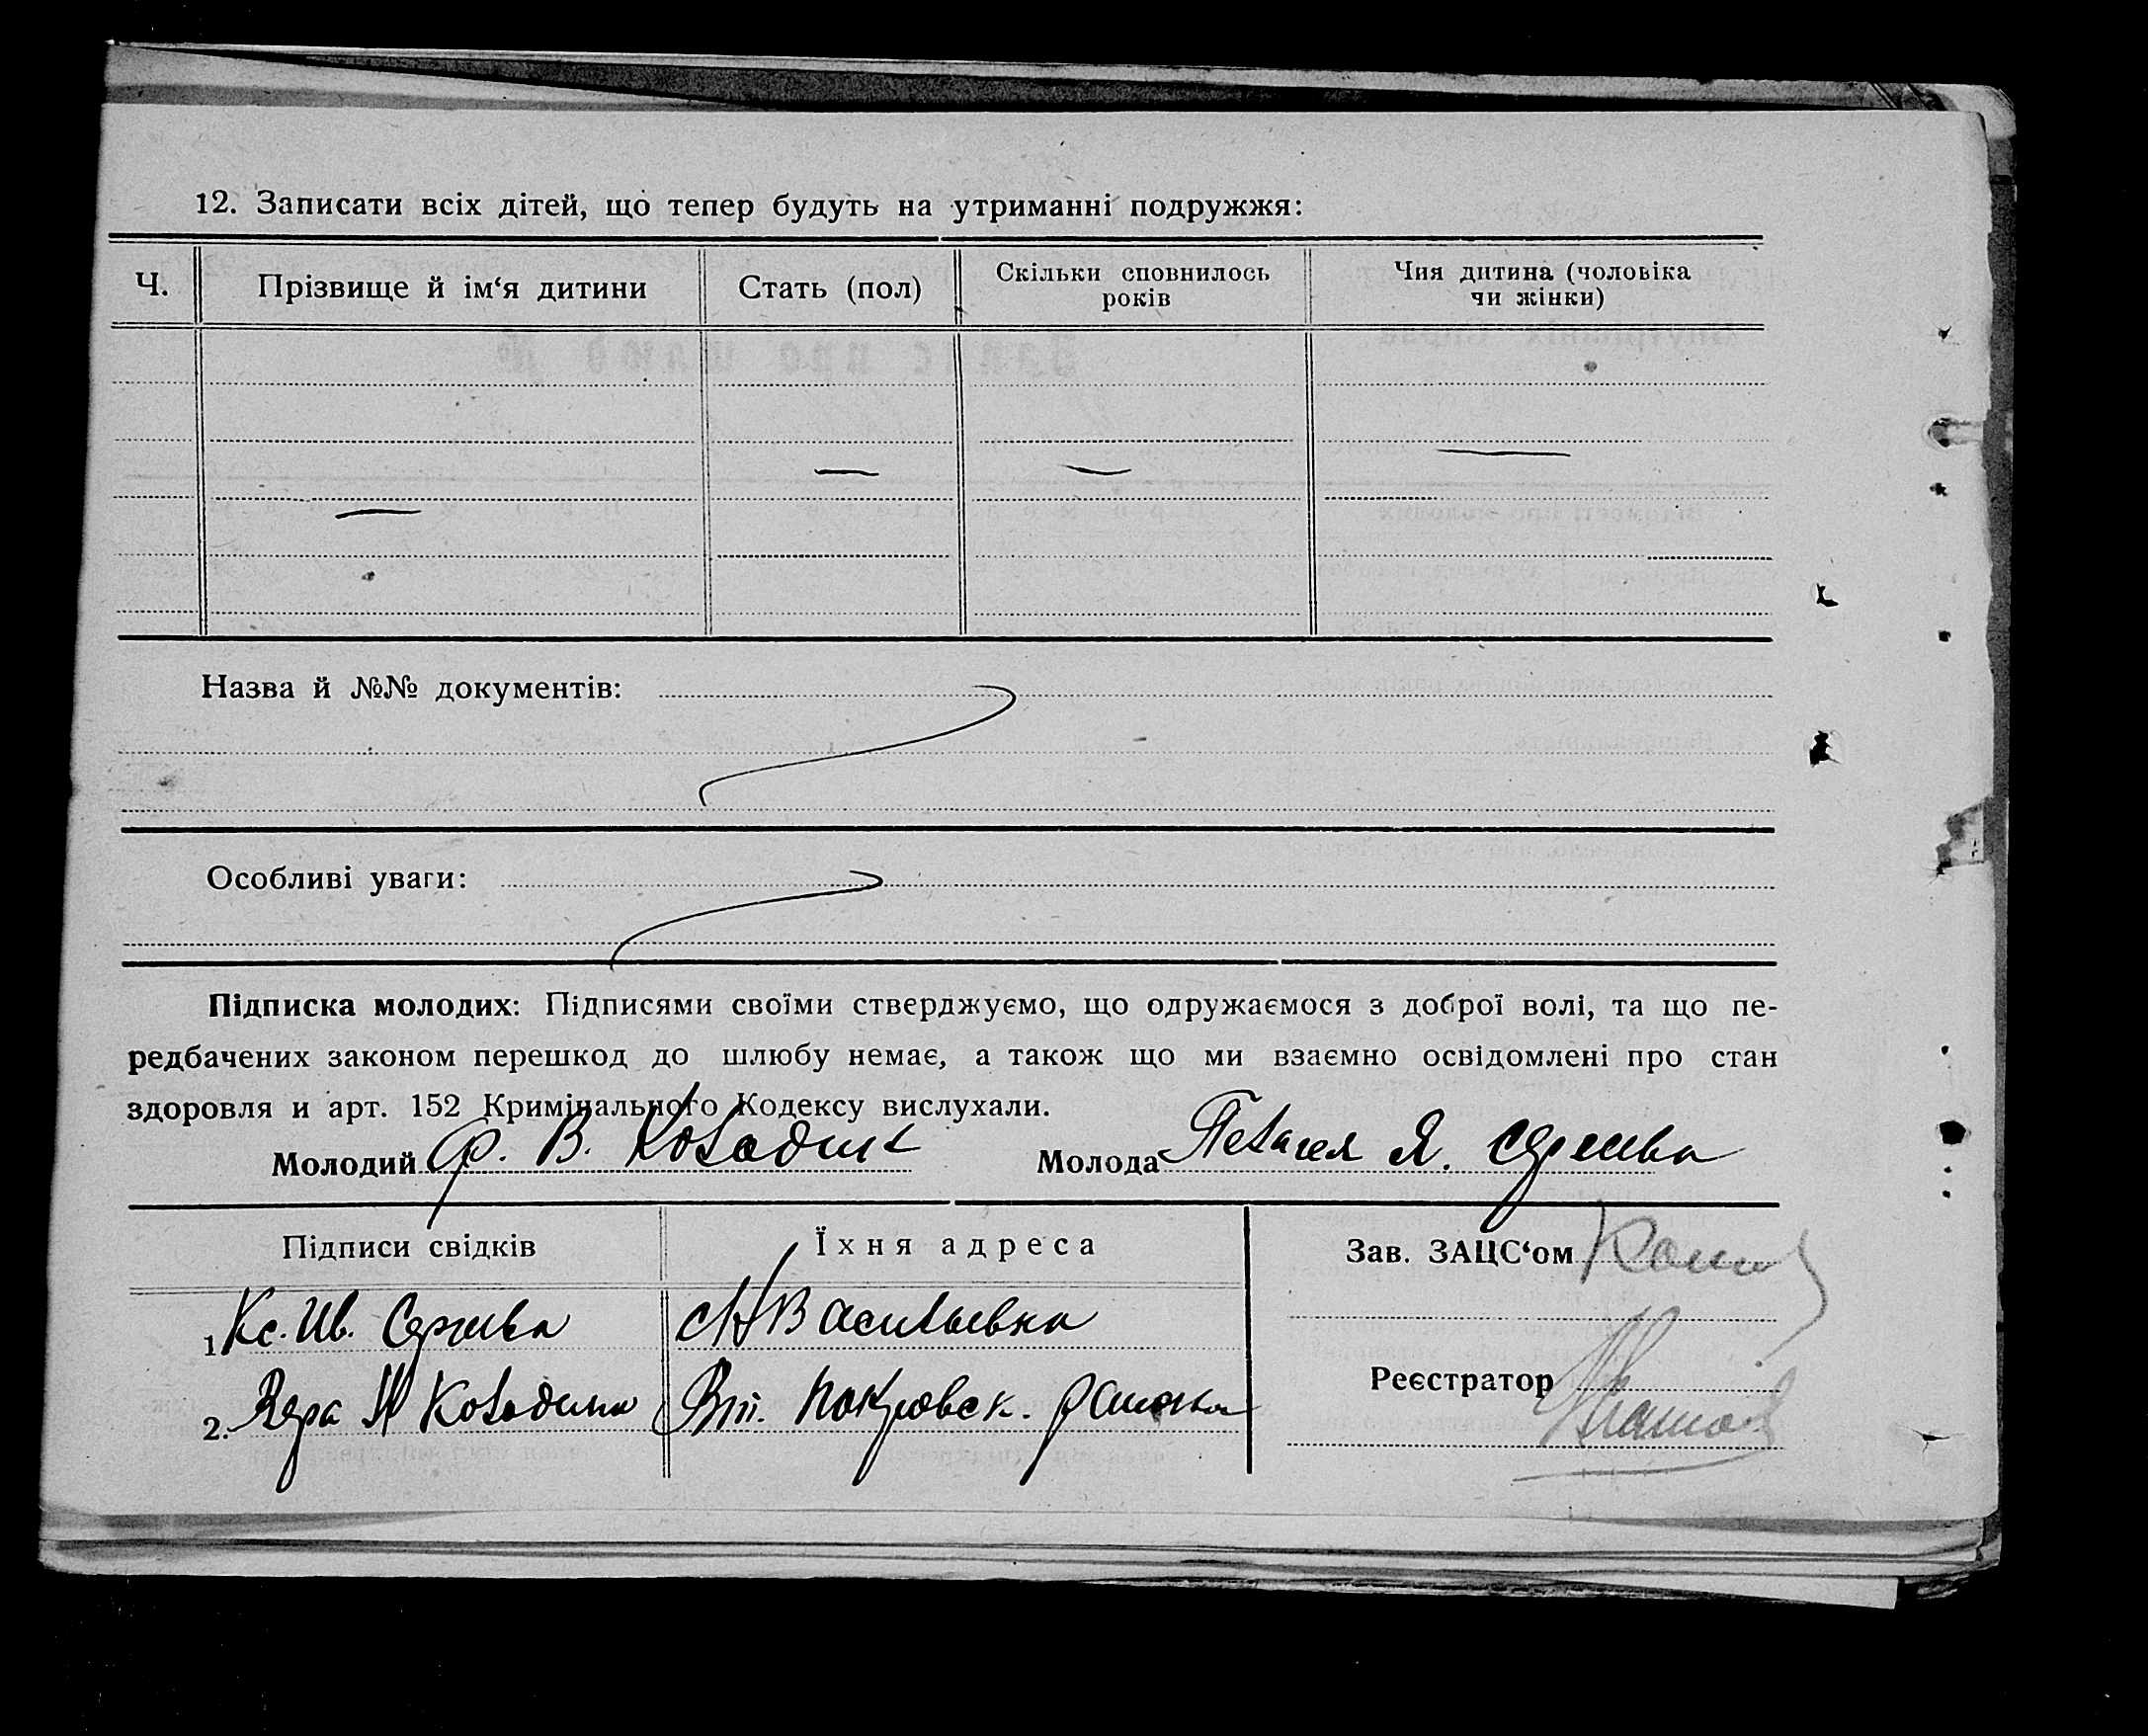 12. Записати всіх дітей, що тепер будуть на утриманні подружжя:
Ч. Прізвище й ім‘я дитини Стать (пол) Скільки сповнилось років Чия дитина (чоловіка чи жінки)
Назва й №№ документів:
Особливі уваги:
Підписка молодих: Підписями своїми стверджуємо, що одружаємося з доброї волі, та що пе-
редбачених законом перешкод до шлюбу немає, а також що ми взаємно освідомлені про стан
здоровля и арт. 152 Кримінального Кодексу вислухали.
Молодий Ф. В. Колодин Молода Пелагея Я.
Підписи свідків Їхня адреса Зав. ЗАЦС‘ом
1 Кс. Ив. Васильевка
2. Вера Колодина Покровск. района
Реєстратор